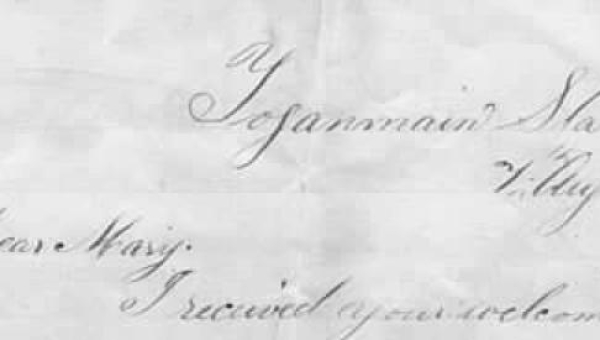 Yoganmain Sta
7th Aug
ear Mary.
I received your welcom